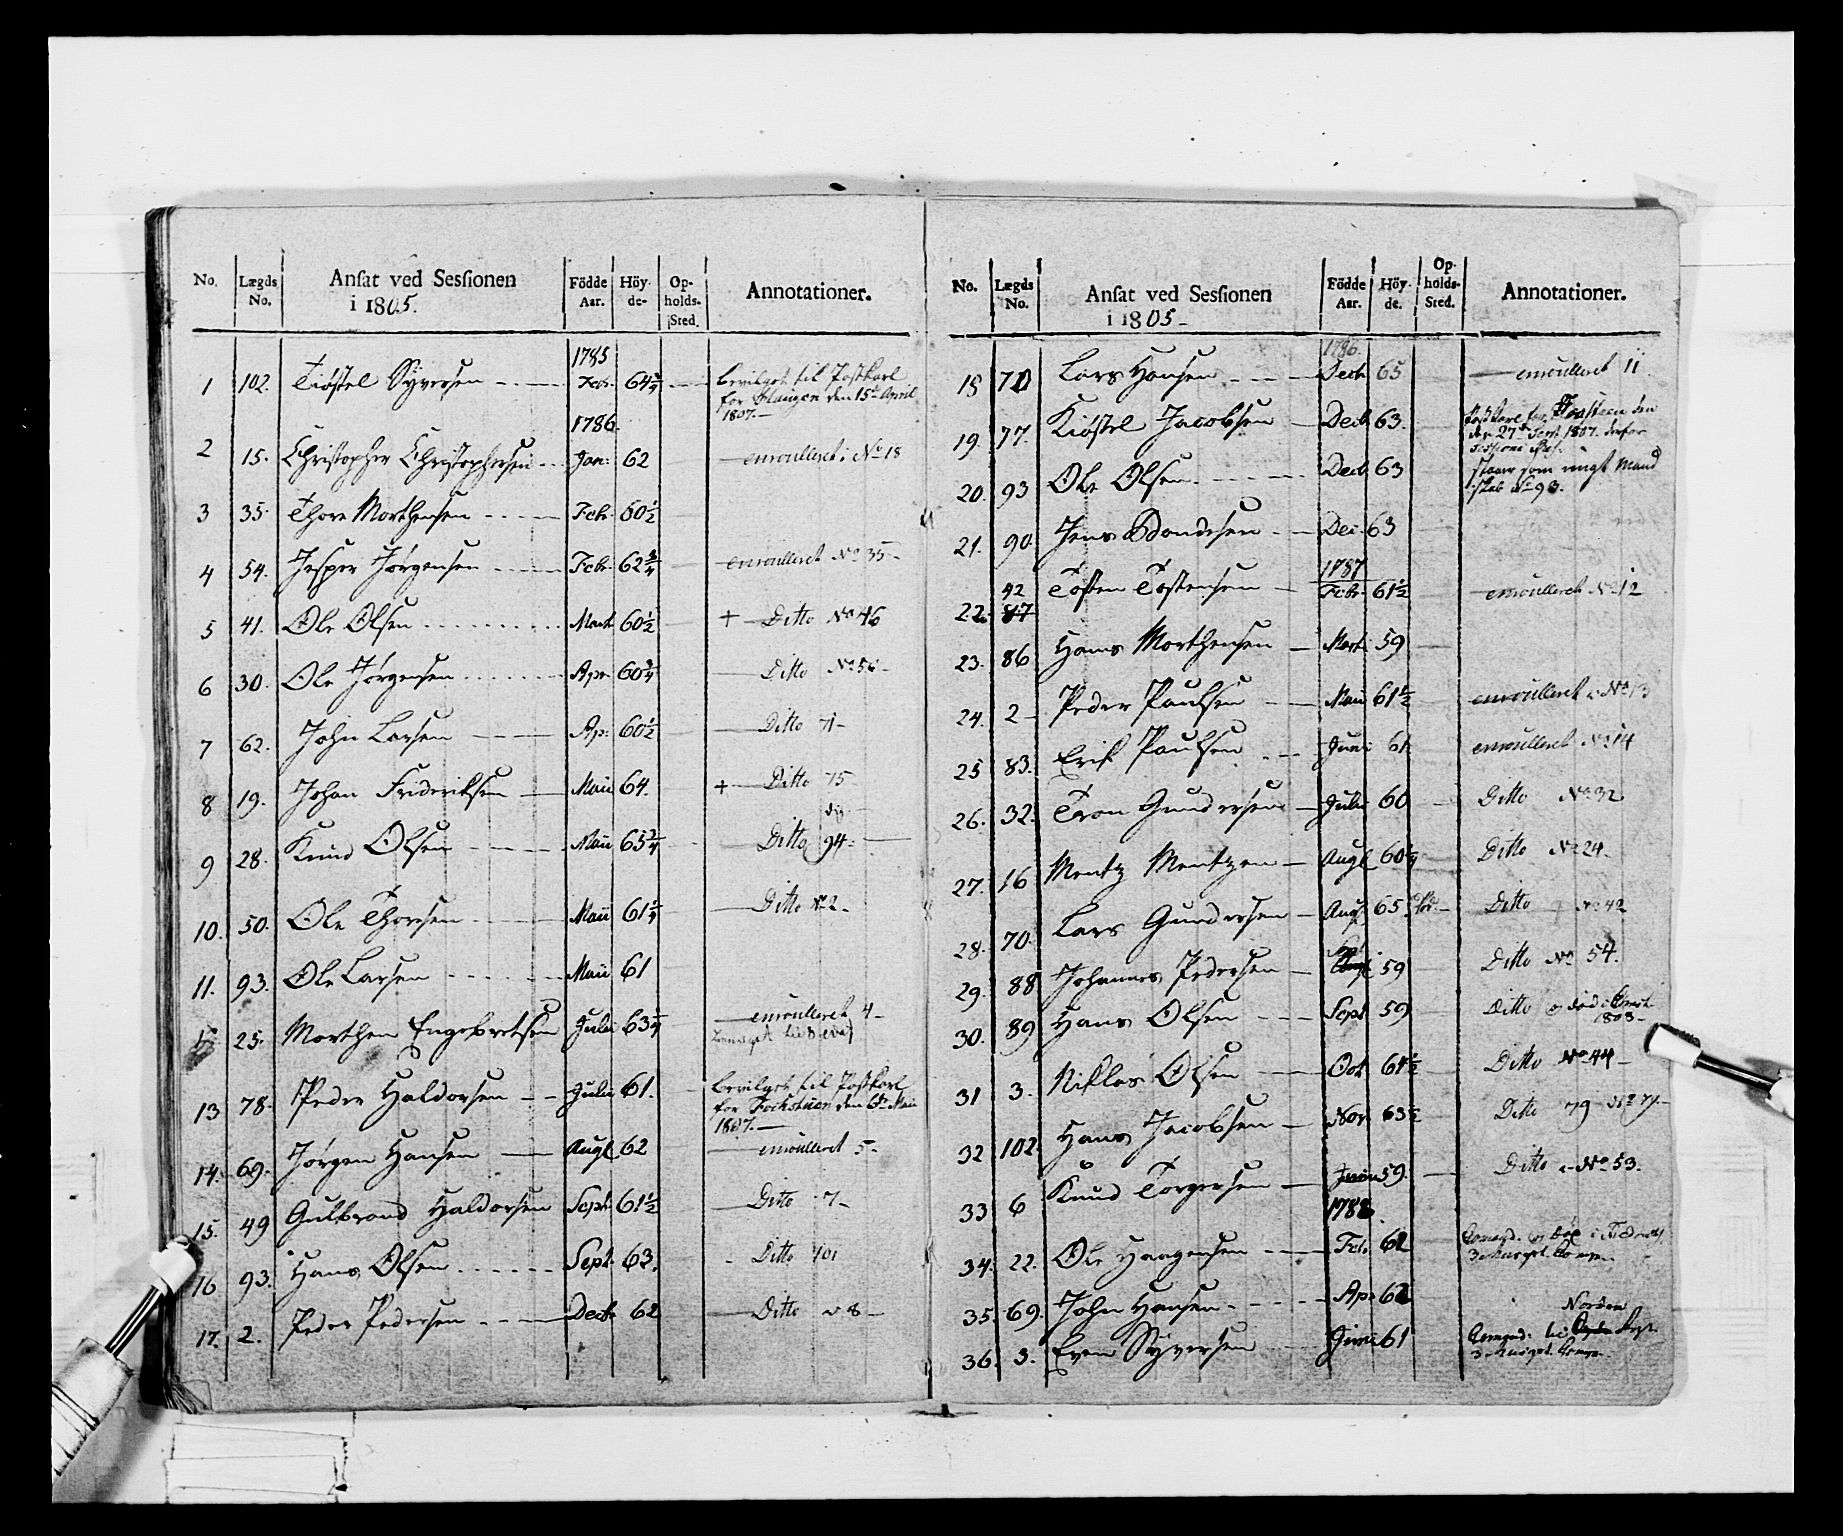 No. Lægds No. Ansat ved Sessionen i 1805. Födde Aar. Höyde- Op-holds-Sted. Annotationer.
1785
1 102. Tiøstel Syversen Febr. 64 3/4 bevilget til Postkarl
for den 15de April
1807.
1786.
2 15. Christopher Christophersen Jan: 62 enroulleret i No 18
3 35. Thore Morthensen Febr. 60 1/2
4 54. Jesper Jørgensen Febr. 62 3/4 enroulleret No 35
5 41. Ole Olsen Mart 60 1/2 + Ditto No 46
6 30. Ole Jørgensen Apr. 60 3/4 Ditto No 50
7 62. John Larsen Ap: 60 1/2 Ditto 71
8 19. Johan Frideriksen Maii 64. + Ditto 75
9 28. Knud Olsen Maii 65 3/4 Ditto 94
10. 50. Ole Thorsen Maii 61 1/4 Ditto No 2
11. 93. Ole Larsen Maii 61
25. Morthen Engebretsen Julii 63 enroulleret 4
13 78. Peder Haldorsen Julii 61. bevilget til Postkarl
for Fochstuen den 6te Maii
1807.
14. 69. Jørgen Hansen Augt. 62 enroulleret 5
15. 49 Gulbrand Haldorsen Sept. 61 1/2 Ditto 7
16 93. Hans Olsen Sept. 63. Ditto 101
17. 2. Peder Pedersen Decbr 62 Ditto 8
No. Lægds No. Ansat ved Sessionen i 1805 Födde Aar. Höy-de. Op-holds-Sted. Annotationer.
1786.
18 70 Lars Hansen Decb. 65 enroulleret 11
19. 77. Kiøstel Jacobsen Decb. 63. Postkarl for den
27de Febr. 1807.
20. 93 Ole Olsen Decb. 63 staaer som ungt Mand
skab No 93.
21. 90 Jens Dec. 63
1787
42
22. 87 Tosten Tostensen Febr. 61 1/2 enroulleret No 12
23. 86 Hans Morthensen Mart. 59
24. 2 Peder Paulsen Maii 61 1/2 enroulleret No 13
25 83. Erik Paulsen Junii 61 enroulleret No 14
26. 32. Tron Gundersen Julii 60 Ditto No 32
27. 16 Mentz Mentzen Augt. 60 Ditto No 24
28. 70. Lars Gundersen Aug. 65 Ditto No 42
29. 88 Johannes Pedersen 59 Ditto No 54.
30. 89 Hans Olsen Sept 59 Ditto død i
1808
31 3. Niklas Olsen Oct. 61 1/2 Ditto No 44
32 102. Hans Jacobsen Nov. 63 Ditto 79
33 6 Knud Torgersen Junii 59. Ditto No 53.
1788
34. 22. Ole Haagensen Feb. 62
35. 69. John Hansen Apr 62
Norden
36. 3. Even Syversen Junii 61